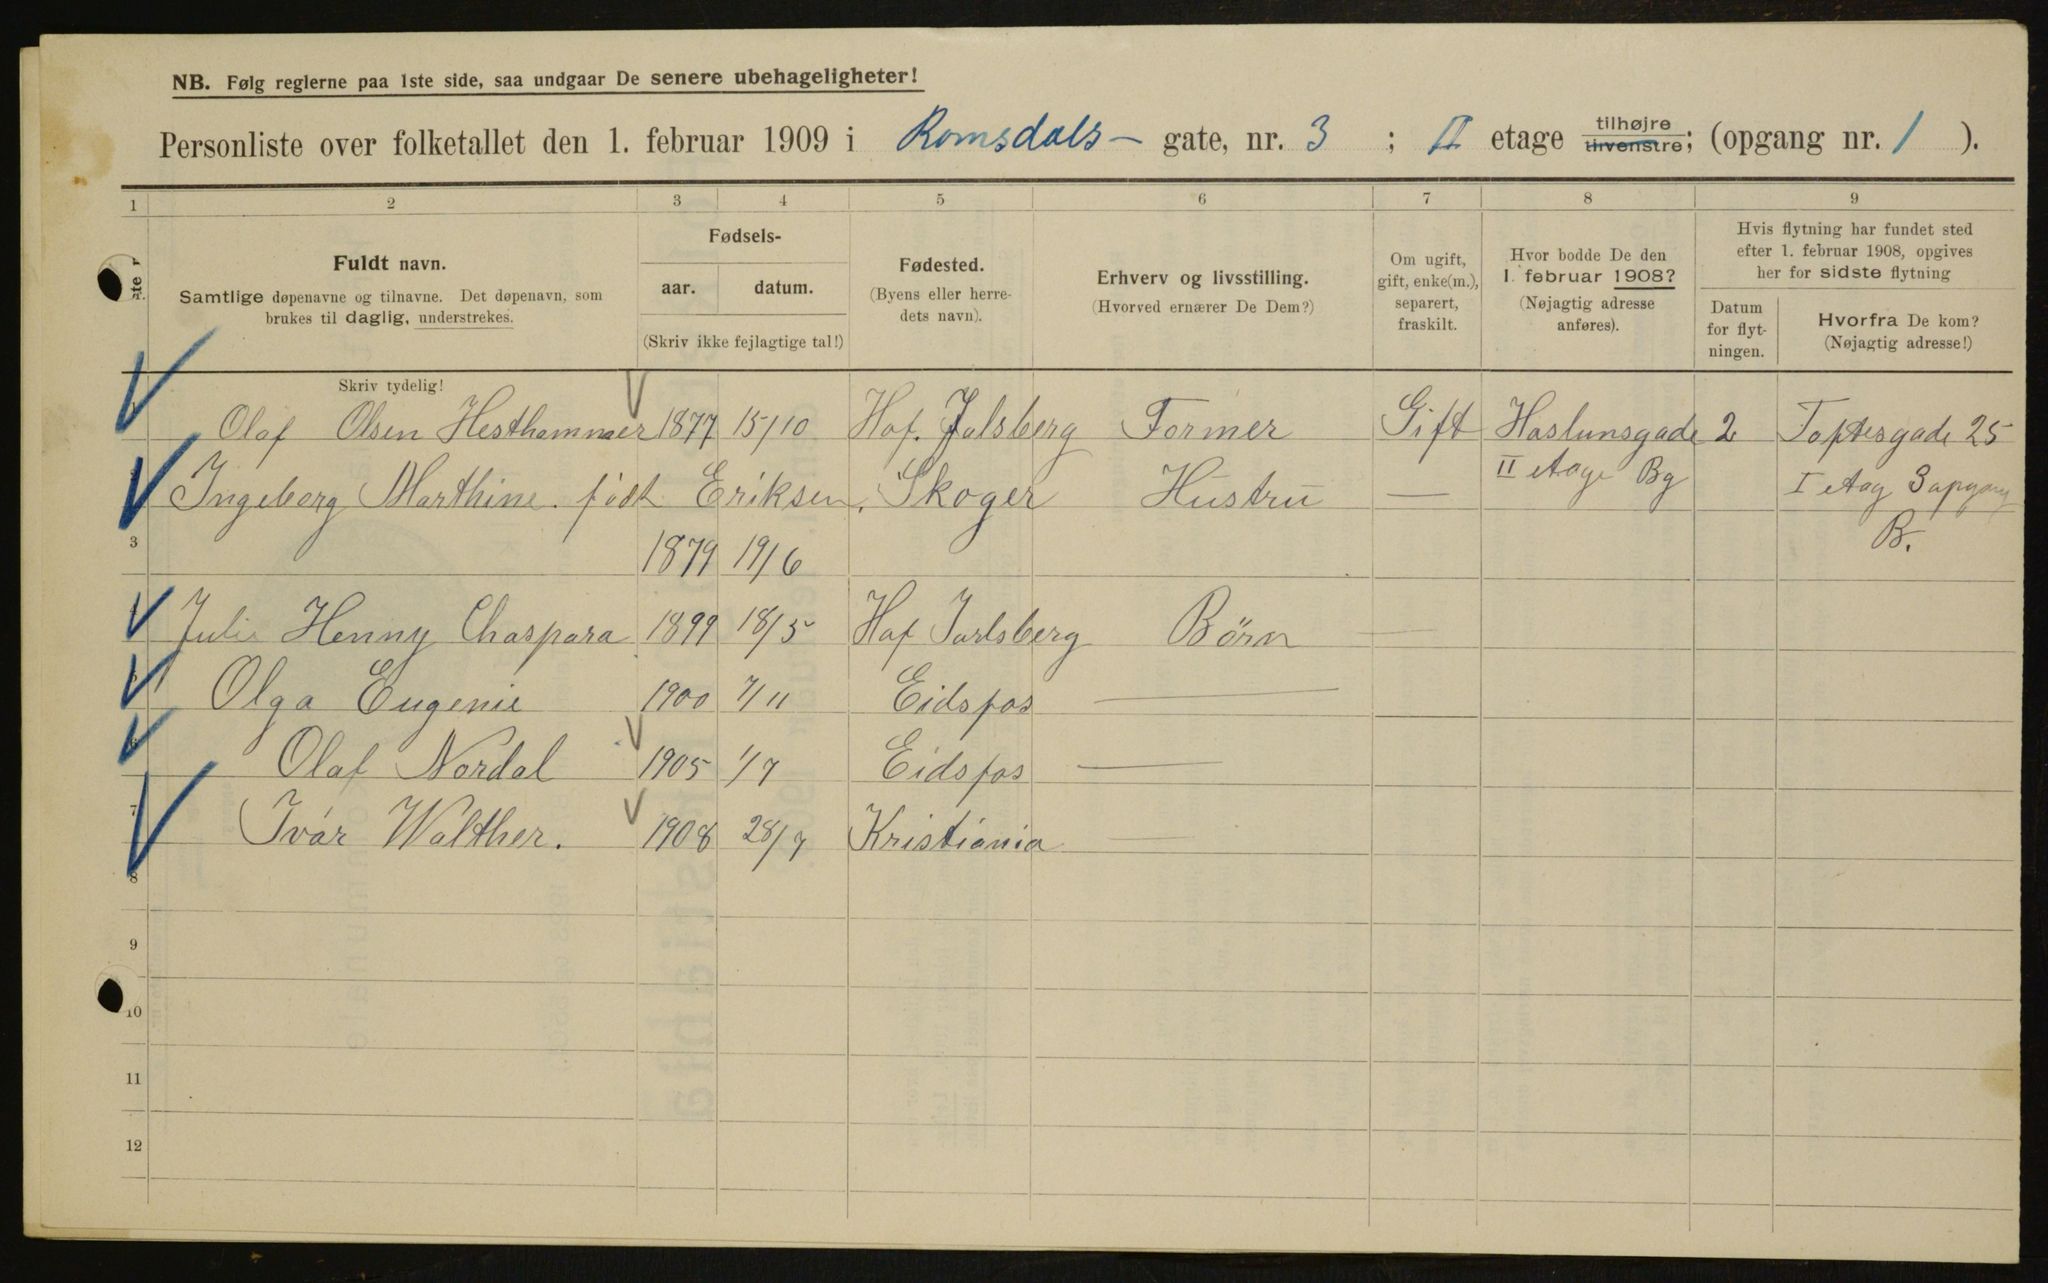 NB. Følg reglerne paa 1ste side, saa undgaar De senere ubehageligheter!
Personliste over folketallet den 1. februar 1909 i Romsdals- gate, nr. 3 ; II etage tilhøjre tilvenstre; (opgang nr. 1 ).
1 2 3 4 5 6 7 8 9
Fuldt navn.
Samtlige døpenavne og tilnavne. Det døpenavn, som
brukes til daglig, understrekes.
Fødsels-
aar. datum.
(Skriv ikke fejlagtige tal!)
Fødested.
(Byens eller herre-
dets navn).
Erhverv og livsstilling.
(Hvorved ernærer De Dem?)
Om ugift,
gift, enke(m.),
separert,
fraskilt.
Hvor bodde De den
1. februar 1908?
(Nøjagtig adresse
anføres).
Hvis flytning har fundet sted
efter 1. februar 1908, opgives
her for sidste flytning
Datum
for flyt-
ningen.
Hvorfra De kom?
(Nøjagtig adresse!)
Skriv tydelig!
Olaf Olsen Hesthammer 1877 15/10 Hof. Jalsberg Former Gift Haslunsgade 2 Toftesgade 25
II etage Bg I etag 3 opgang
Ingeborg Marthine. født Eriksen. Skoger Hustru —
B.
3 1879 19/6
Julie Henny Chaspara 1899 18/5 Hof Jarlsberg Børn —
Olga Eugenie 1900 7/11 Eidsfos —
Olaf Nordal 1905 1/7 Eidsfos —
7 Ivar Walther. 1908 28/7 Kristiania —
8
9
10
11
12